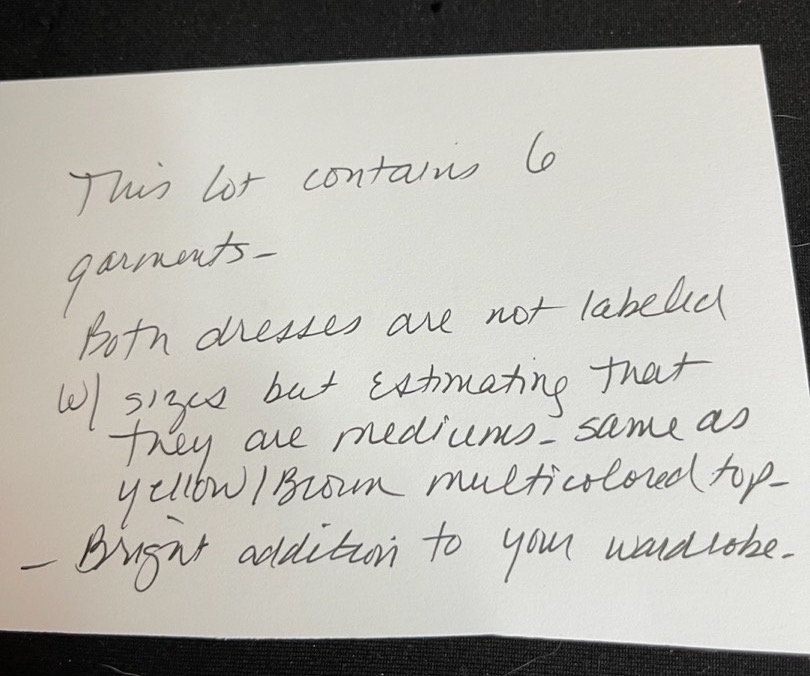 This lot contains 6
garments-
Both dresses are not labeled
w/ sizes but estimating that
they are mediums - same as
yellow/Brown multicolored top-
- Bright addition to your wardrobe.